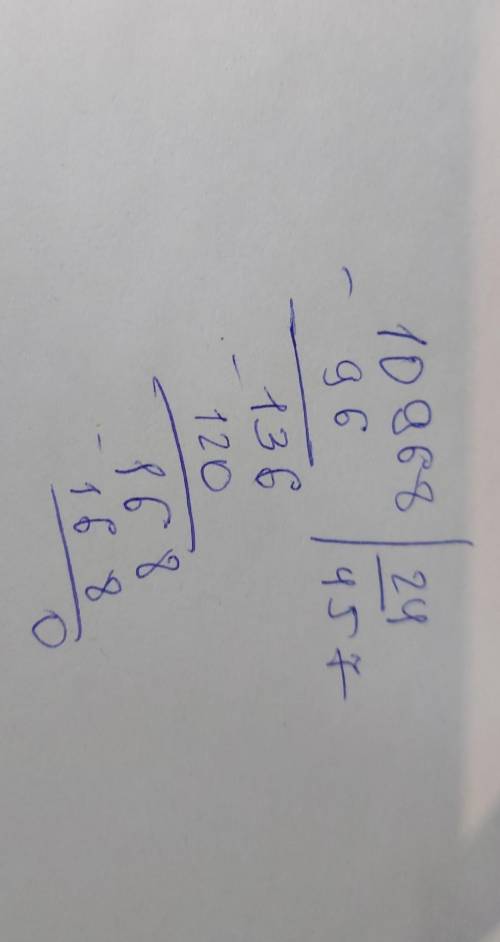 10968 | 24
- 96 457
- 136
120
- 168
168
0